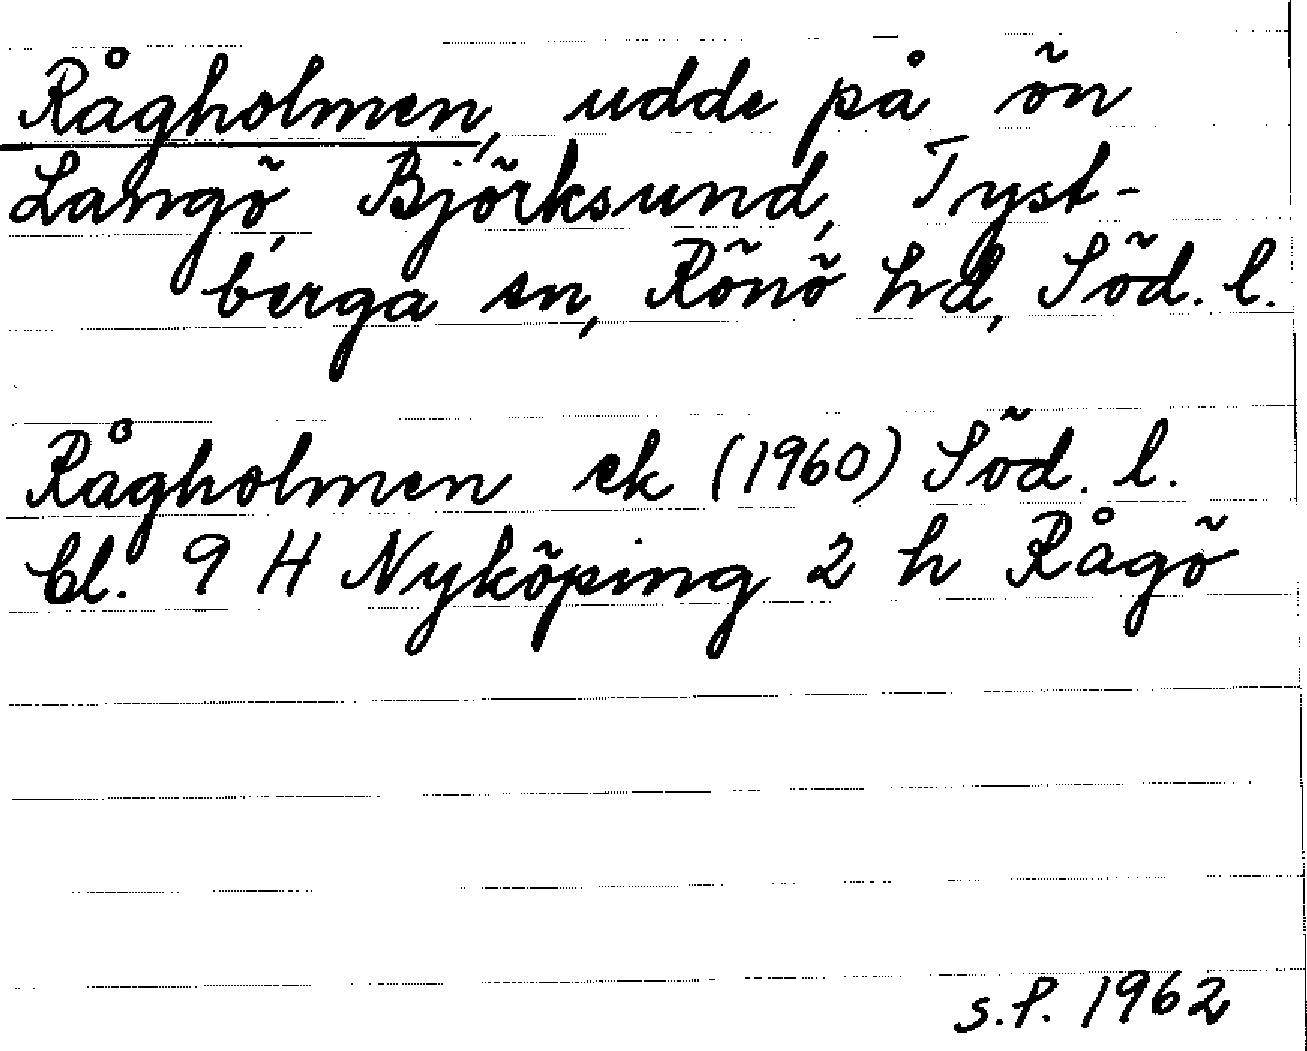 Rågholmen, udde på ön
Langö, Björksund, Tyst-
berga sn, Rönö hd, Söd. l.
Rågholmen ek (1960) Söd. l.
bl. 9 H Nyköping 2 h Rågö
s.P. 1962